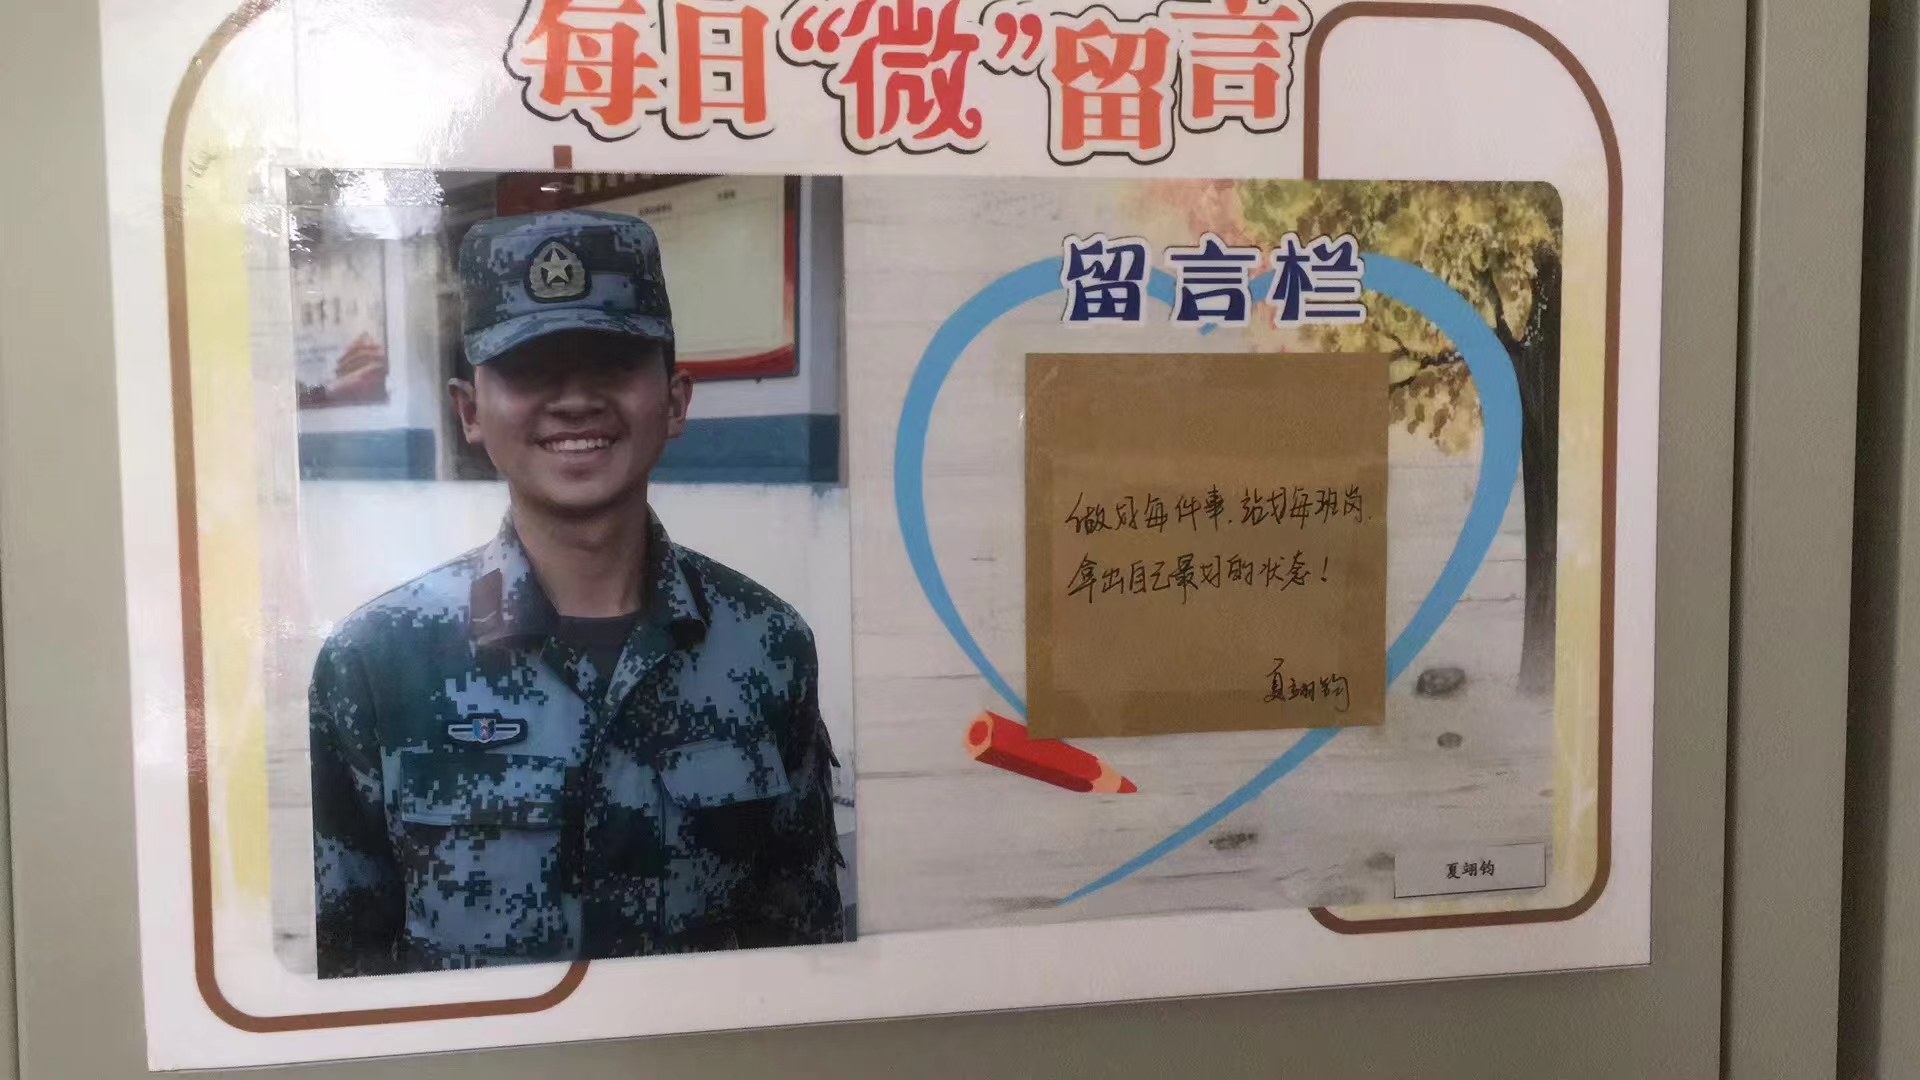 每日“微”留言
留言栏
做好每件事.站好每班岗.
拿出自己最好的状态!
夏翊钧
夏翊钧